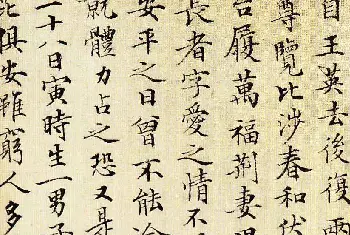 自王英去後復兩
尊覽比涉春和伏
台履萬福荆妻
長者字愛之情不
安平之日曾不能
體力占之恐又是
一十八日寅時生一男子
俱安雖窮人多